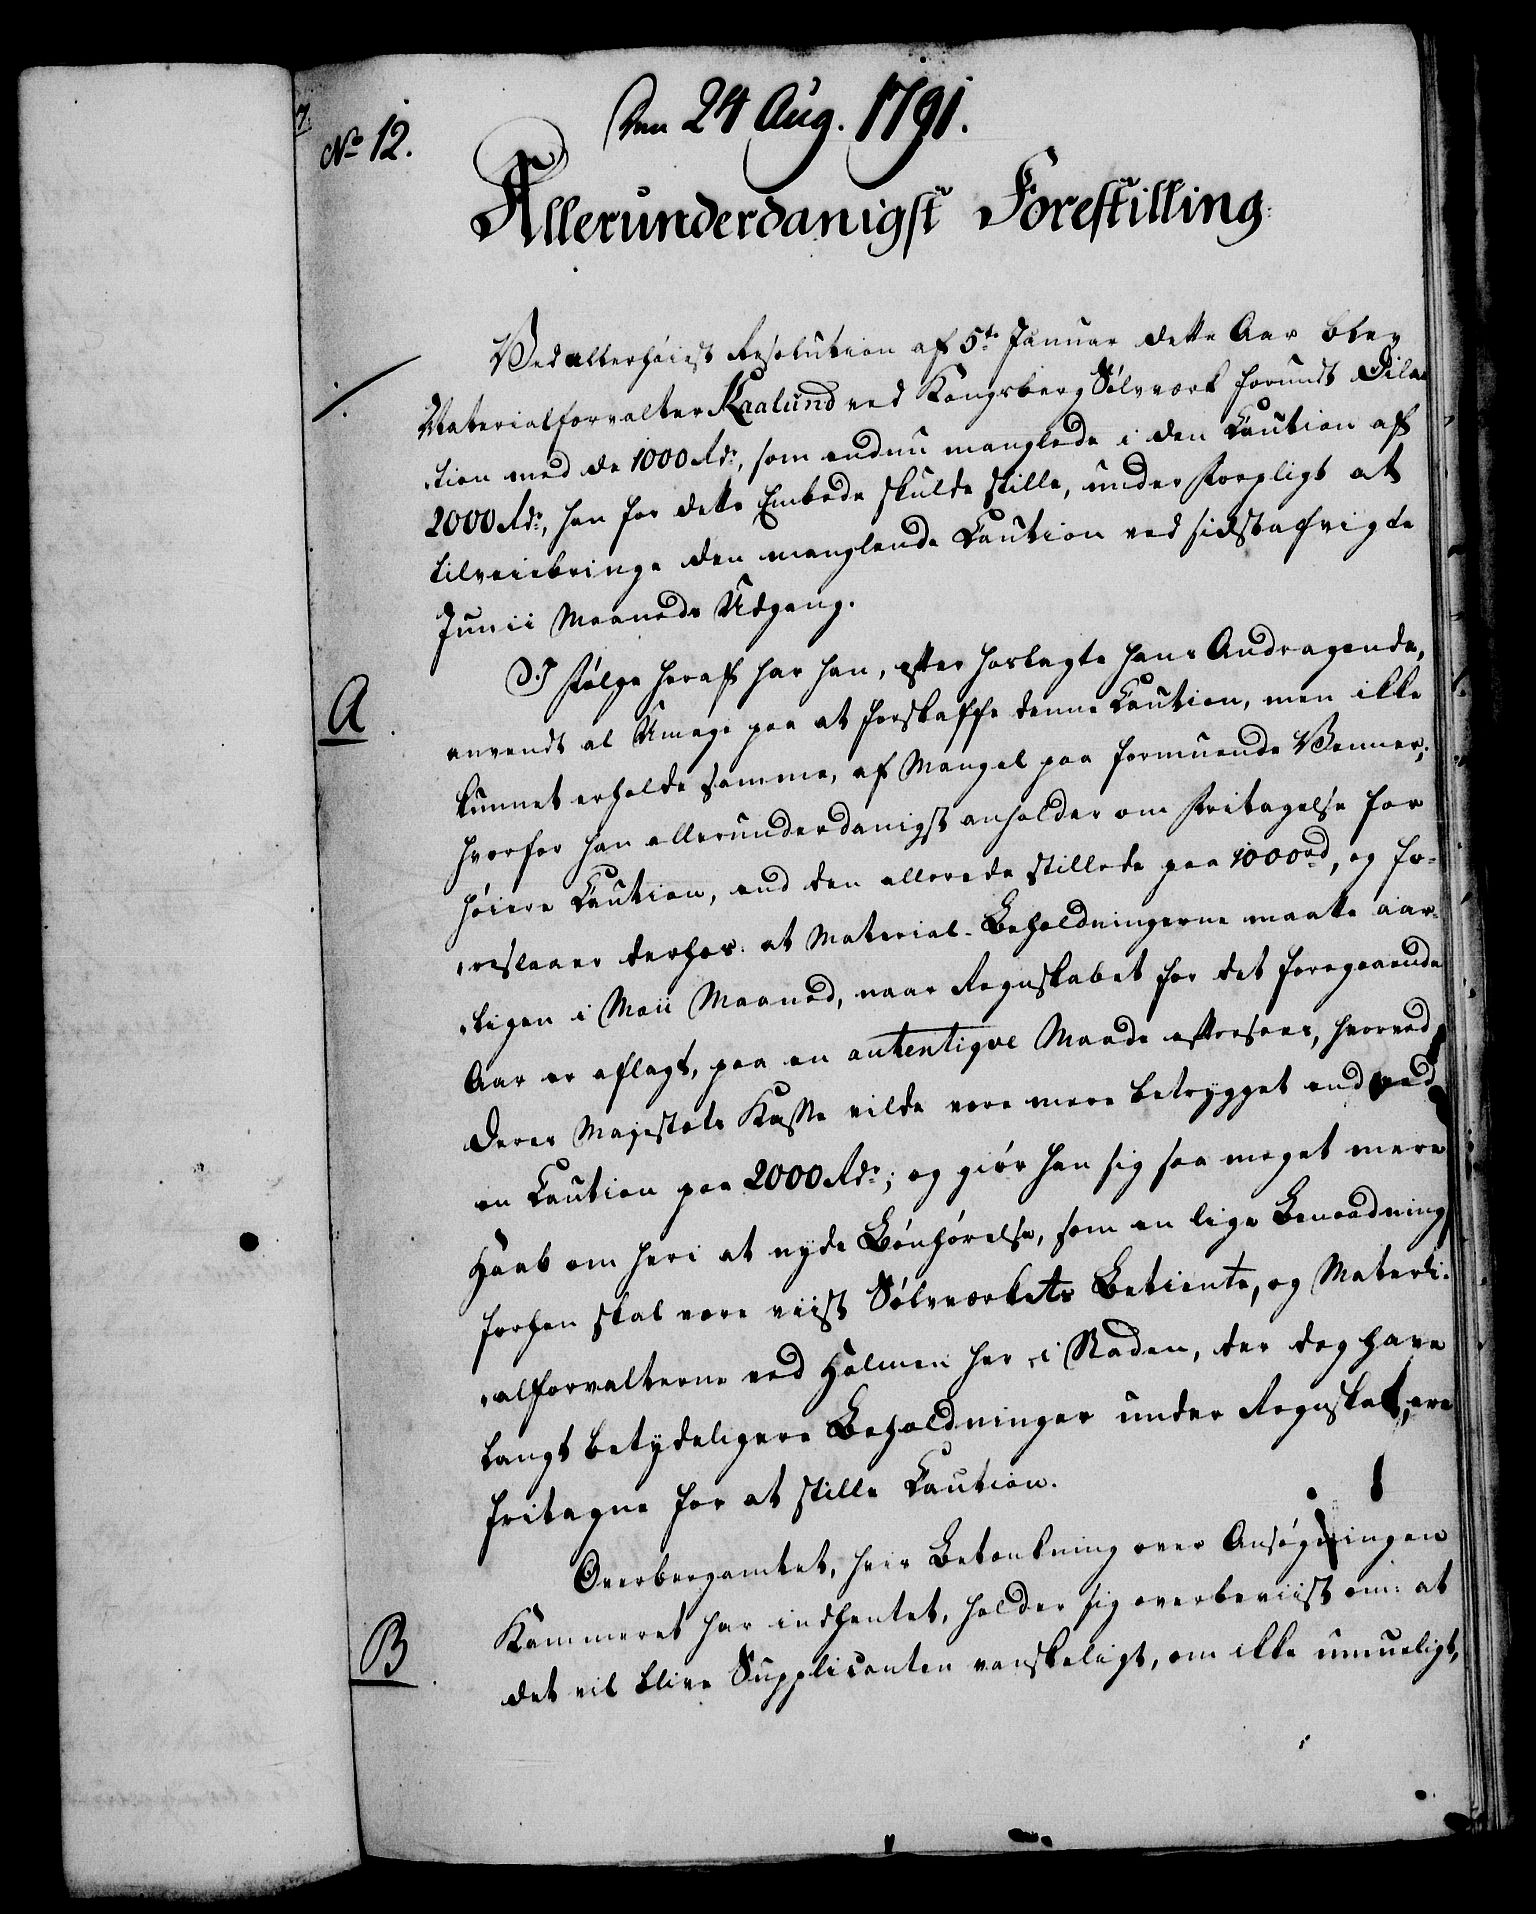 7.
No 12.
Den 24 Aug. 1791.
Allerunderdanigst Forestilling:
Ved allerhöiest Resolution af 5te Januar dette Aar blev
Materialforvalter Kaalund ved Kongsberg Sølvværk forundt Dila-
tion med de 1000 Rdr, som endnu manglede i den Caution af
2000 Rdr, han for dette Embede skulde stille, under Forpligt at
tilveiebringe den manglende Caution ved sidstafvigte
Junii Maaneds Udgang.
A
I Følge heraf har han, efter hoslagte hans Andragende,
anvendt al Umage paa at forskaffe denne Caution, men ikke
kunnet erholde samme, af Mangel paa formuende Venner;
hvorfor han allerunderdanigst anholder om Fritagelse for
höiere Caution, end den allerede stillede paa 1000rd, og fo-
reslaaer derhos: at Material-Beholdningerne maatte aar-
ligen i Maii Maaned, naar Regnskabet for det foregaaende
Aar er aflagt, paa en autentiqve Maade eftersees, hvorved
Deres Majestæts Kasse vilde være mere betrygget end ved
en Caution paa 2000 Rdr; og giör han sig saa meget mere
Haab om heri at nyde Bönhörelse, som en lige Benaadning
forhen skal være viist Sølvværkets Betiente, og Materi-
alforvalterne ved Holmen her i Staden, der dog have
langt betydeligere Beholdninger under Regnskab, ere
fritagne for at stille Caution.
Overbergamtet, hvis Betænkning over Ansøgningen
B
Kammeret har indhentet, holder sig overbeviist om: at
det vil blive Supplicanten vanskeligt, om ikke umueligt,